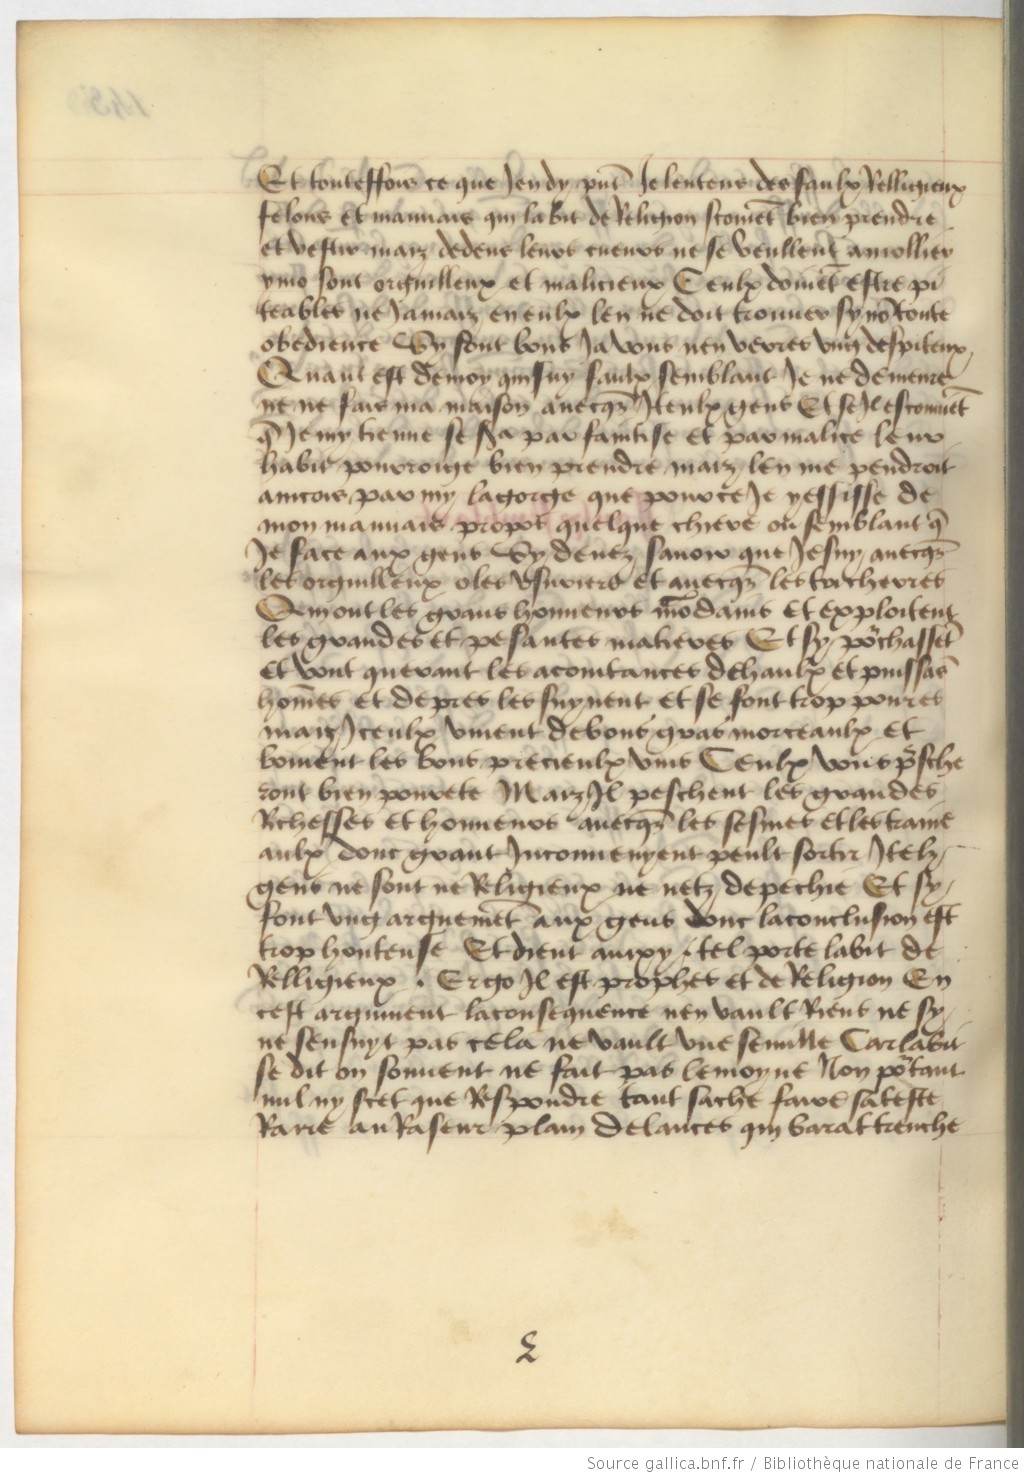 Et touteffoys ce que Jen dy put̃ Je lentens des faulx Relligieux
felons et mauvais qui labit de Religion scouuet̃ bien prendre
et vestir maiz dedens leurs cueurs ne se veullent amollier
ymo sont orguilleux et malicieux Ceulx doiuet̃ estre pi
teables ne Jamaiz en eulx len ne doit trouuer sy nõ toute
obedience Sy sont bons Ja vous nen verres vng despiteux
Quant est de moy qui suy faulx semblant Je ne demeure
ne ne fais ma maison auecqz Jceulx gens Et se Jl escouuet̃
q̃ Je my tienne se sa par faintise et par malice leur
habit pourroige bien prendre maiz len me pendroit
aincois par my la gorge que pour ce Je yssisse de
mon mauuais propos quelque chiere ou semblant q̃
Je face aux gens Sy deuez sauoir que Je suy auecqz
les orguilleux o les vsuriers et auecqz les torcheures
Qui ont les grans honneurs mõdains et exploitent
les grandes et pesantes matieres Et sy põchasset̃
et vont querant les acointances de haulx et puissãs
hom̃es et depres les suyuent et se font trop poures
maiz Jceulx viuent de bons gras morceaulx et
boiuent les bons precieulx vins Ceulx vous p̃sche
ront bien pourete Maiz Jl peschent les grandes
Richesses et honneurs auecqz les sesines et les traine
aulx donc grant Jnconuenyent peult sortir Jtelz
gens ne sont ne Religieux ne netz de pechie Et sy
font vng arguemet̃ aux gens donc la conclusion est
trop honteuse Et dient auxy . tel porte labit de
Relligieux . Ergo Jl est prophes et de Religion En
cest argument la consequence nen vault Riens ne sy
ne sensuyt pas cela ne vault vne senille Car labit
se dit on souuent ne fait pas le moyne Non põtant
nul ny scet que Respondre tant sache faire sa teste
Rarre au Raseur plain de lances qui barat trenche